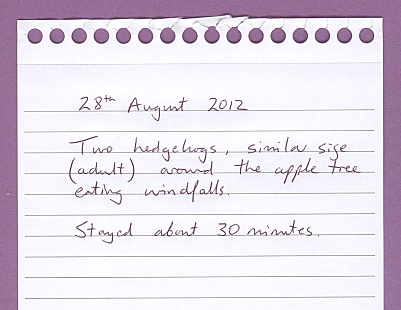 28th August 2012
Two hedgehogs, similar size
(adult) around the apple tree
eating windfalls.
Stayed about 30 minutes.